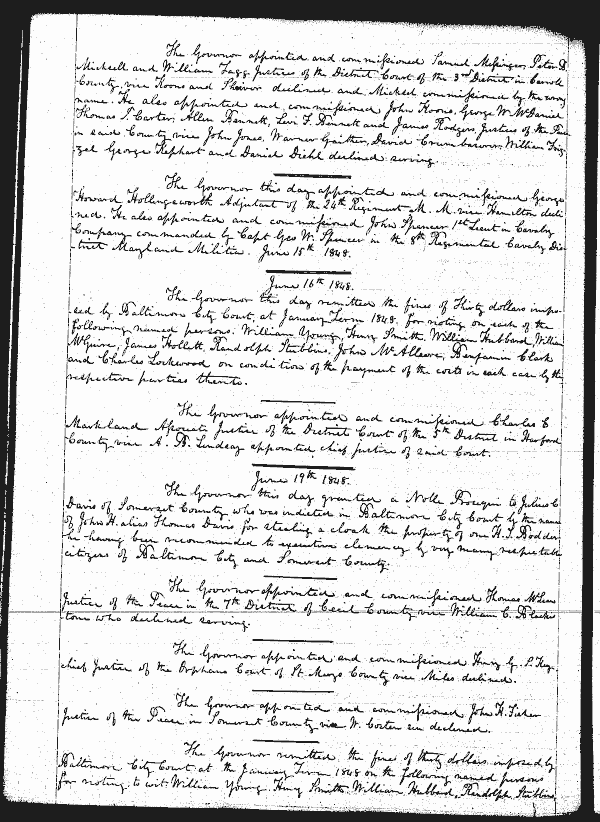 The Governor appointed and commissioned Samuel Messinger, Peter B
Michaell and William Fagg Justices of the District Court of the 3rd District in Carroll
County, vice Koons and declined and Mickel commissioned by the wrong
name. He also appointed and commissioned John Koons, George W. McDaniel
Thomas S. Carter, Allen Bennett, Levi T. Bennett and James Rodgers, Justices of the Peace
in said County vice John Jones, Warner Gaither, David William
George Kephart and Daniel Diehl declined serving.
The Governor this day appointed and commissioned George
Howard Hollingsworth Adjutant of the 24th Regiment M. M. vice Hamilton decli
ned. He also appointed and commissioned John Spencer 1st Lieut in Cavalry
Company commanded by Capt Geo W. Spencer in the 8th Regimental Cavalry Dis-
trict Maryland Militia. June 15th 1848.
June 16th 1848.
The Governor this day remitted the fines of thirty dollars impo-
sed by Baltimore City Court, at January Term 1848, for rioting on each of the
following named persons. William Young, Henry Smith, William Hubbard, William
McGuire, James Hollett, Randolph Stribbins, John McAlleave, Benjamin Clark
and Charles Lockwood on condition of the payment of the costs in each case by the
respective parties thereto.
The Governor appointed and commissioned Charles C
Markland Associate Justice of the District Court of the 5th District in Harford
County vice A. B. Lindsay appointed chief justice of said Court.
June 19th 1848.
The Governor this day granted a Nolle Prosequi to Julius C
Davis of Somerset County who was indicted in Baltimore City Court by the name
of John H. alias Thomas Davis for stealing a cloak the property of one H. S.
he having been recommended to executive clemency by very many respectable
citizens of Baltimore City and Somerset County.
The Governor appointed and commissioned Thomas
Justice of the Peace in the 7th District of Cecil County vice William C. Blacks
tone who declined serving.
The Governor appointed and commissioned Henry G. S. Key
chief Justice of the Orphans Court of St Marys County vice Miles declined.
The Governor appointed and commissioned John H. Fisher
Justice of the Peace in Somerset County vice W. declined.
The Governor remitted the fine of thirty dollars imposed by
Baltimore City Court at the January Term 1848 on the following named persons
for rioting to wit William Young, Henry Smith, William Hubbard, Randolph Stribbins,